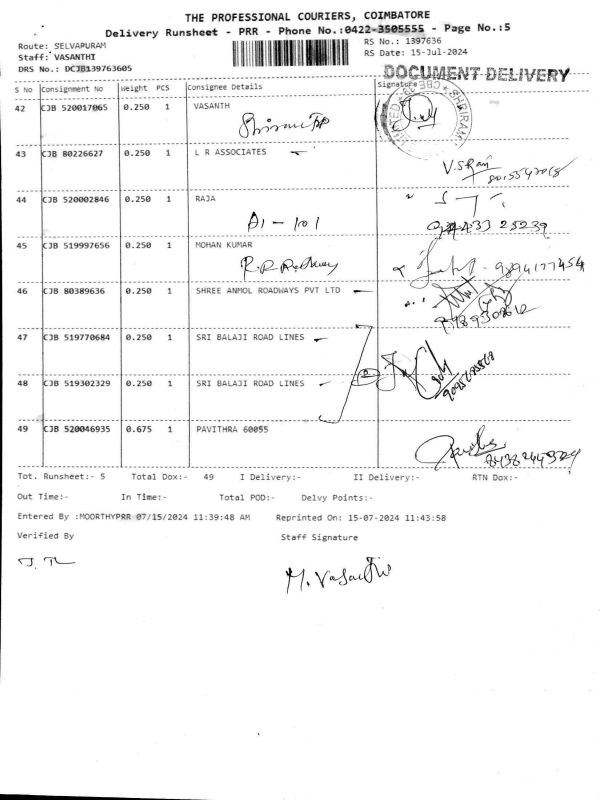 THE PROFESSIONAL COURIERS, COIMBATORE
Delivery Runsheet - PRR - Phone No.:0422-3505555 - Page No.:5
Route: SELVAPURAM
RS No.: 1397636
Staff: VASANTHI
RS Date: 15-Jul-2024
DRS No.: DCJB139763605
DOCUMENT DELIVERY
S No Consignment No Weight PCS Consignee Details Signature
42 CJB 520017065 0.250 1 VASANTH
SHRIRAM
43 CJB 80226627 0.250 1 L R ASSOCIATES
44 CJB 520002846 0.250 1 RAJA
A1 - 101
45 CJB 519997656 0.250 1 MOHAN KUMAR
9894177454
46 CJB 80389636 0.250 1 SHREE ANMOL ROADWAYS PVT LTD
47 CJB 519770684 0.250 1 SRI BALAJI ROAD LINES
48 CJB 519302329 0.250 1 SRI BALAJI ROAD LINES
49 CJB 520046935 0.675 1 PAVITHRA 60055
Tot. Runsheet:- 5 Total Dox:- 49 I Delivery:- II Delivery:- RTN Dox:-
Out Time:- In Time:- Total POD:- Delvy Points:-
Entered By :MOORTHYPRR 07/15/2024 11:39:48 AM Reprinted On: 15-07-2024 11:43:58
Verified By Staff Signature
M. Vasanthi